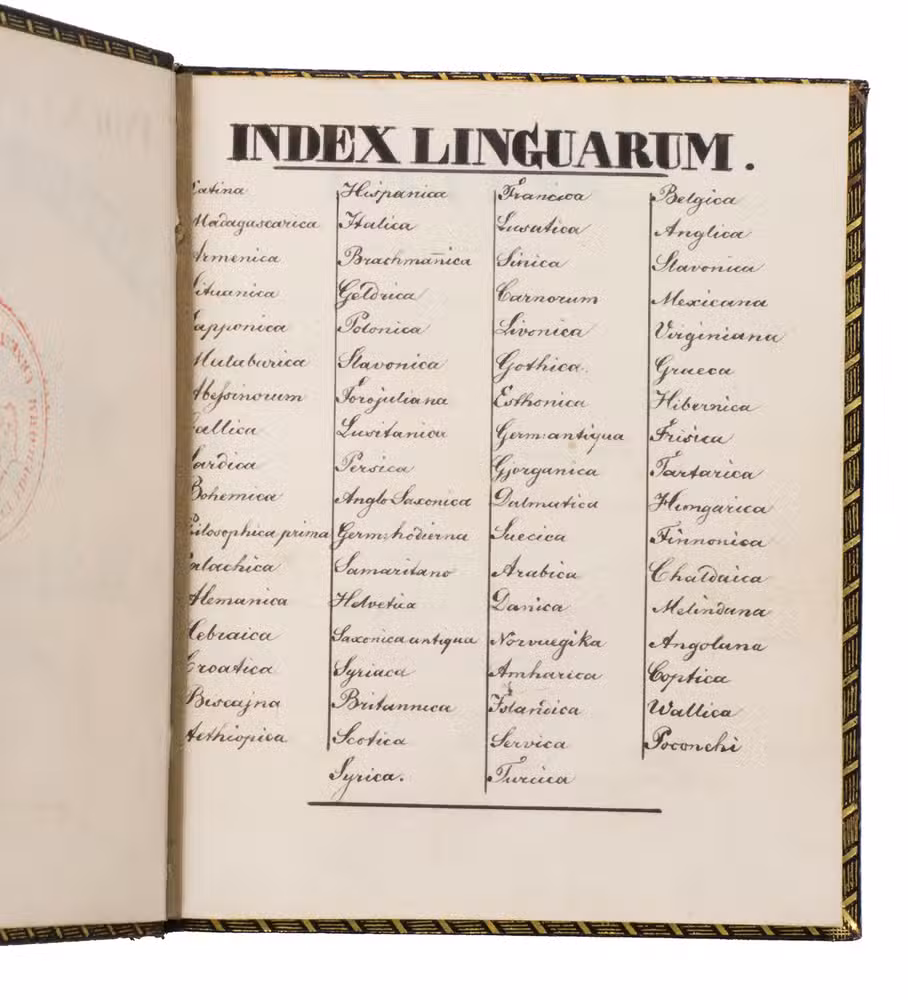 INDEX LINGUARUM.
Latina
Madagascarica
Armenica
Lituanica
Lapponica
Malabarica
Abeſsinorum
Gallica
Sardica
Bohemica
Philosophica prima
Valachica
Alemanica
Hebraica
Croatica
Biscajna
Aethiopica
Hispanica
Italica
Brachman̄ica
Geldrica
Polonica
Slavonica
Forojuliana
Lusitanica
Persica
Anglo Saxonica
Germ: hodierna
Samaritano
Helvetica
Saxonica antiqua
Syriaca
Britannica
Scotica
Syrica.
Francica
Lusatica
Sinica
Carnorum
Livonica
Gothica.
Esthonica
Germ: antiqua
Gjorganica
Dalmatica
Suecica
Arabica
Danica
Norvuegika
Amharica
Islandica
Servica
Turcica
Belgica
Anglica
Slavonica
Mexicana
Virginiana
Graeca
Hibernica
Frisica
Tartarica
Hungarica
Finnonica
Chaldaica
Melindana
Angolana
Coptica
Wallica
Poconchi